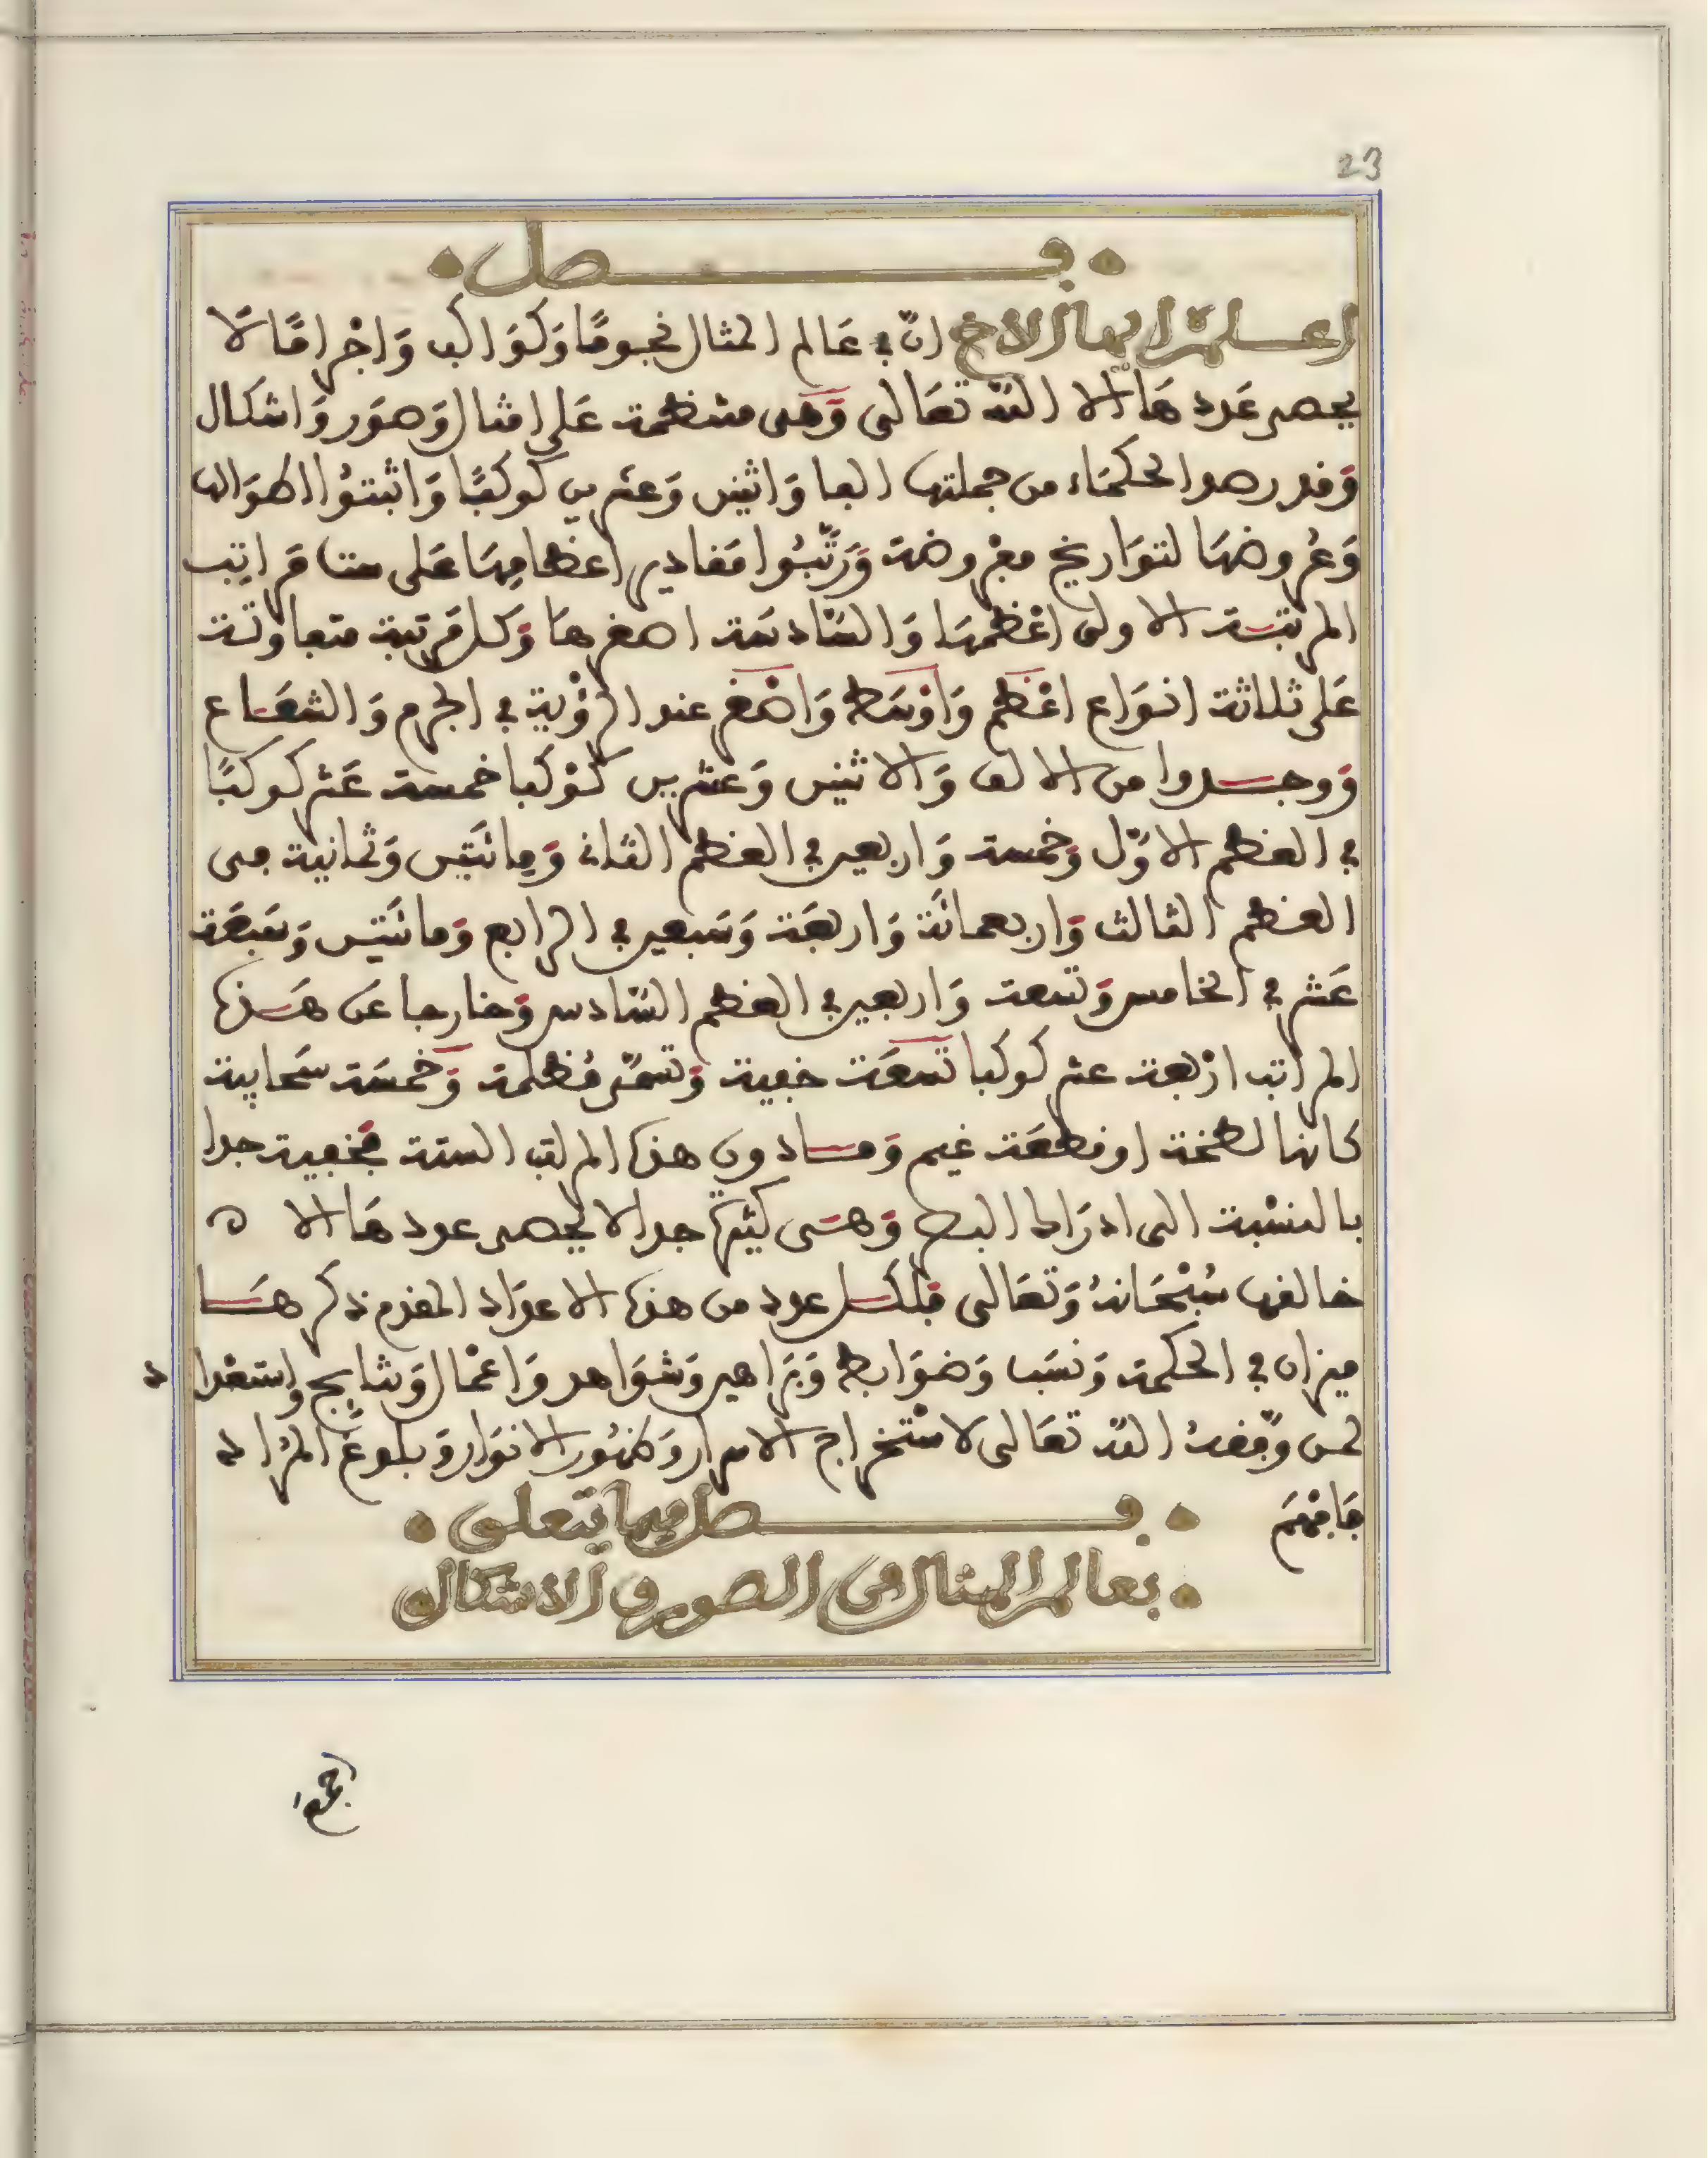 23
فصل
اعلم ايها الاخ انّ في عَالم المثال نجومًا وَكوَاكب وَاجْرامًا لَا
يحصر عَددهَا الا الله تعَالى وَهى منظمة عَلى امثال وَصوَر وَاشكال
وَقد رصد الحكمَاء من جملتها الفا وَاثنين وَعشرين كوكبًا وَاثبتوُا اطوَالها
وَعُروضهَا لتوَاريخ معْروضة وَرَتّبُوا مَقادير اعظامِهَا عَلى ستة مَراتِب
المرتبَة الاولى اعْظمهَا وَالسَّادسَة اصغرهَا وَكل مَرتبة متفاوتة
عَلى ثلاثة انوَاع اعْظم وَاوْسَط وَاصْغر عند الرؤْية في الجرم وَالشعَاع
وَوجدوا من الالف وَالاثنين وَعشرين كوْكبا خمسة عَشر كوكبًا
في العظم الاوّل وَخمسة وَاربعين في العظم الثانى وَمِائتَين وَثمانية فى
العظم الثالث وَاربعمائَة وَاربعَة وَسَبعين في الرابع وَمائتَين وَسَبعَة
عَشر في الخامس وَتسعة وَاربعين في العظم السَّادس وَخارجا عَن هَذه
المراتب ارْبعة عشر كوكبا تسعَة خفية وَتسمّى مُظلمة وَخمسَة سَحابية
كانها لطخة او قطعَة غيم وَمَا دون هذه المراتب الستة فخفية جدا
بالنسْبة الى ادرَاك البصر وَهىَ كثيرة جدا لا يحصر عددهَا الا ه
خالقها سُبْحَانهُ وَتعَالى فلكل عدد من هذه الاعدَاد المقدم ذكرهَا
ميزان في الحكمة وَنسَب وَضوَابط وَبرَاهين وَشوَاهد وَاعْمال وَنتايج واستعْدا د
لمن وَفقهُ الله تعَالى لاسْتخراج الاسرار وَكنُوز الانوَار وَبلوغ المرَاد
فَافْهَم
فصل فيما يتعلق
بعالم المثال من الصور و الاشكال
اجمع